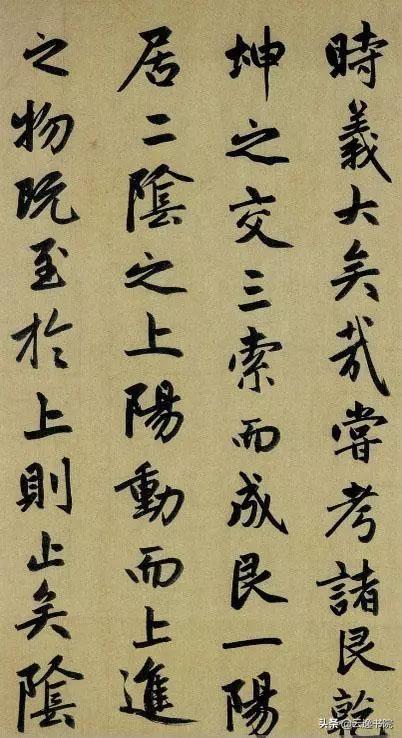 時義大矣哉嘗考諸艮乾
坤之交三索而成艮一陽
居二陰之上陽動而上進
之物既至於上則止矣陰
头条@云逸书院